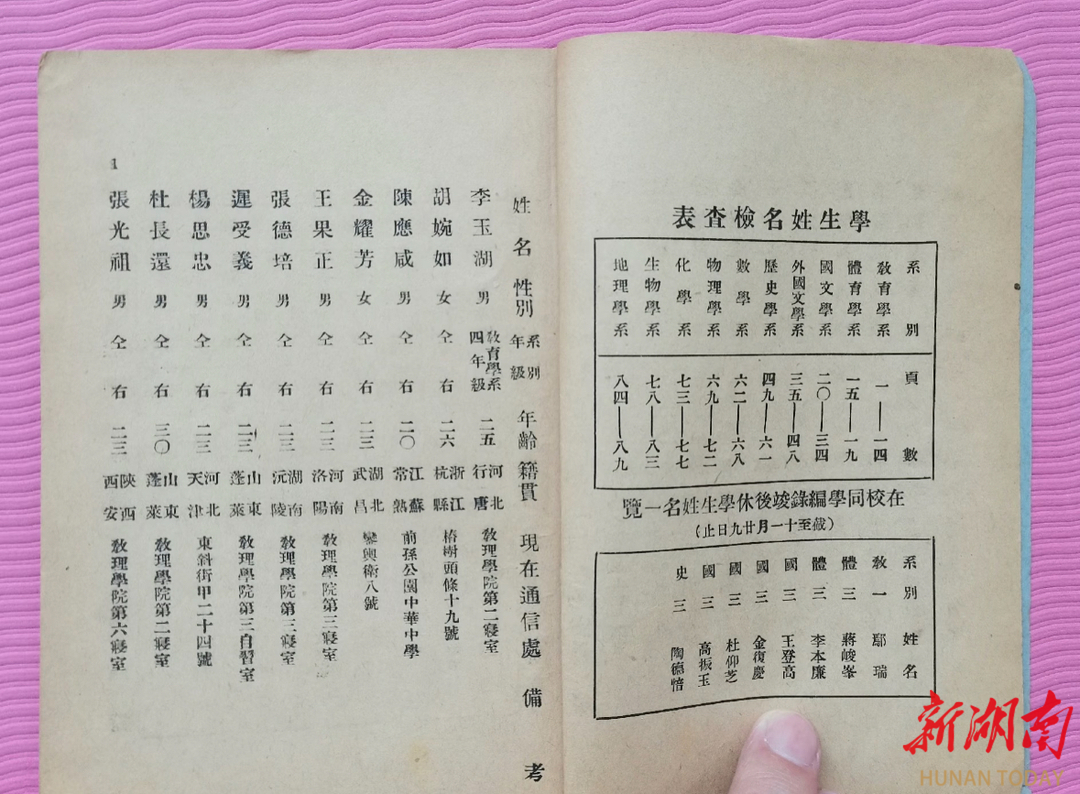 學生姓名檢查表
系別 頁數
教育學系 一——一四
體育學系 一五——一九
國文學系 二〇——三四
外國文學系 三五——四八
歷史學系 四九——六一
數學系 六二——六八
物理學系 六九——七二
化學系 七三——七七
生物學系 七八——八三
地理學系 八四——八九
在校同學編錄竣後休學生姓名一覽
(截至十一月廿九日止)
系別 姓名
教一 鄢瑞
體三 蔣峻峯
體三 李本廉
國三 王登高
國三 金復慶
國三 杜仰芝
國三 高振玉
史三 陶德愔
姓名 性別 系別年級 年齡 籍貫 現在通信處 備考
李玉湖 男 教育學系四年級 二五 河北行唐 教理學院第二寢室
胡婉如 女 仝右 二六 浙江杭縣 椿樹頭條十九號
陳應咸 男 仝右 二〇 江蘇常熟 前孫公園中華中學
金耀芳 女 仝右 二三 湖北武昌 鑾輿衛八號
王果正 男 仝右 二三 河南洛陽 教理學院第三寢室
張德培 男 仝右 二三 湖南沅陵 教理學院第三寢室
遲受義 男 仝右 二三 山東蓬萊 教理學院第三自習室
楊思忠 男 仝右 二三 河北天津 東斜街甲二十四號
杜長還 男 仝右 三〇 山東蓬萊 教理學院第二寢室
張光祖 男 仝右 二三 陝西西安 教理學院第六寢室
1
新湖南
HUNAN TODAY